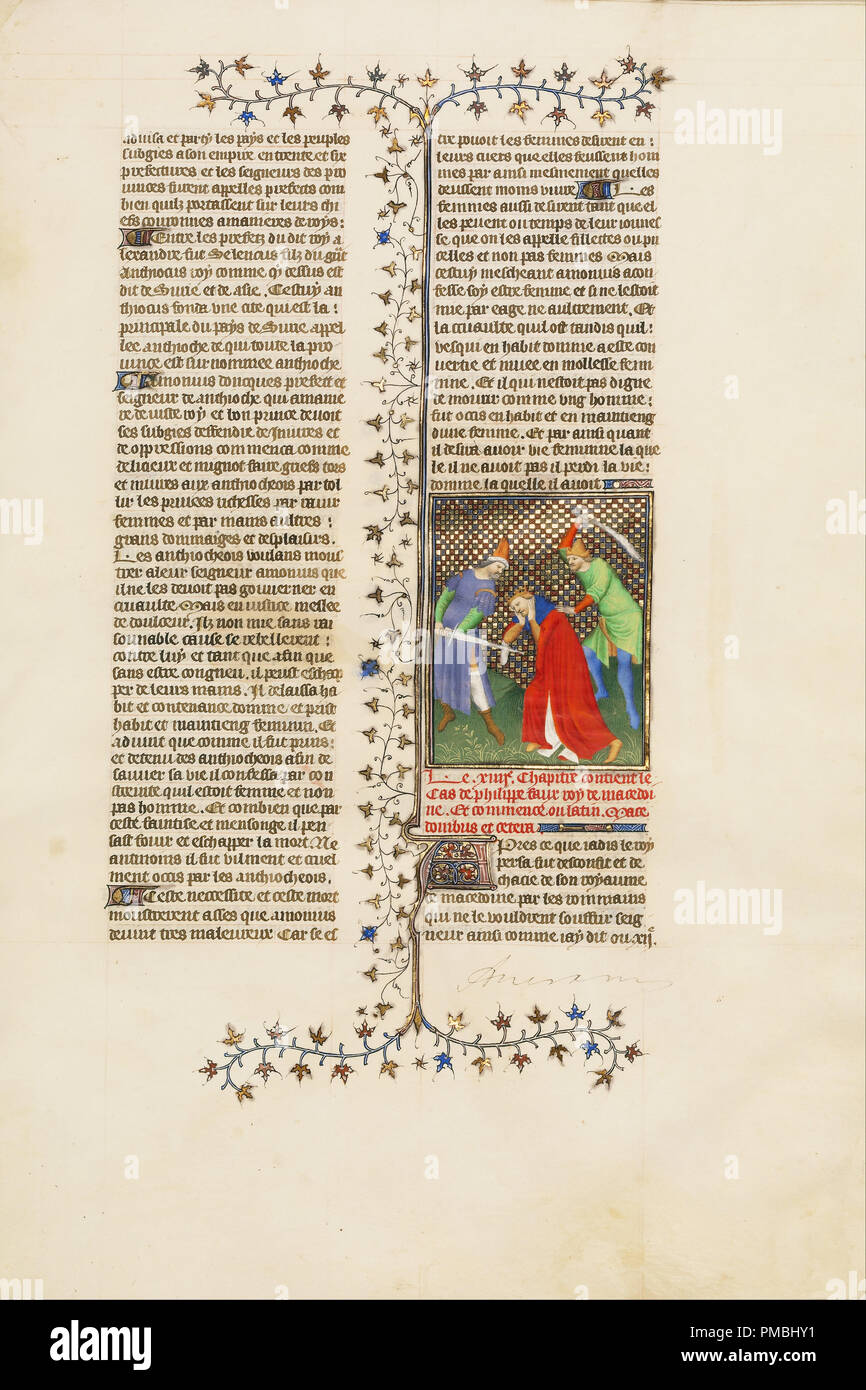 diuisa et party les pays et les peuples
subgies a son empire en trente et six
prefectures et les seigneurs des pro
uinces furent appelles prefects com
bien quilz portassent sur leurs chi
efs couronnes a maniere de roys:
Entre les prefetz du dit roy a
lexandre fut Selencus filz du gñt
anthiocus roy comme cy dessus est
dit de Surie et de asie. Cestuy an
thiocus fonda vne cite qui est la:
principale du pays de Surie appel
lee anthioche de qui toute la pro
uince est surnommee anthioche
Amonius doncques prefect et
seigneur de anthioche qui a manie
re de iuste roy et bon prince deuoit
ses subgies deffendre de iniures et
de oppressions commenca comme
delicieux et mignot faire griefz tors
et iniures aux anthiocheois par tol
lir les priuees richesses par rauir
femmes et par mains aultres:
grans dommaiges et desplaisirs.
Les anthiocheois voulans mons
trer a leur seigneur amonius que
il ne les deuoit pas gouuerner en
cruaulte Mais en iustice meslee
de doulceur. Ilz non mie sans rai
sounable cause se rebellerent:
contre luy et tant que afin que
sans estre congneu. il peust eschap
per de leurs mains. Il delaissa ha
bit et contenance domme. et prist
habit et maintieng feminin. Et
aduint que comme il fut prins:
et detenu des anthiocheois afin de
sauuer sa vie il confessa par con
streinte quil estoit femme et non
pas homme. Et combien que par
ceste faintise et mensonge il pen
sast fouir et eschapper la mort. Ne
antmoins il fut vilment et cruel
ment occis par les anthiocheois.
Ceste neccessite et ceste mort
monstrerent asses que amonius
deuint tres maleureux Car se es
tre pouoit les femmes desirent en:
leurs cuers que elles feussent hom
mes par ainsi mesmement quelles
deussent moins viure Les
femmes aussi desirent tant que el
les peuent ou temps de leur iounes
se que on les appelle fillettes ou pu
celles et non pas femmes Mais
cestuy mescheant amonius a con
fesse soy estre femme et si ne lestoit
mie par eage ne aultrement. Et
la cruaulte quil ost tandis quil:
vesqui en habit domme a este con
uertie et muee en mollesse femi
nine. Et il qui nestoit pas digne
de mourir comme vng homme:
fut occis en habit et en maintieng
dune femme. Et par ainsi quant
il desira auoir vie feminine la que
le il ne auoit pas il perdi la vie:
domme la quelle il auoit
Le .xiiiie. Chapitre contient le
Cas de philippe faux roy de macedoi
ne. Et commence ou latin. Mace
donibus et cetera
Apres ce que iadis le roy
persa fut desconfit et de
chacie de son royaume
de macedoine par les rommains
qui ne le vouldrent souffrir seig
neur ainsi comme iay dit ou xiie.
alamy
alamy
alamy
alamy
alamy
alamy
alamy
a
a
a
a
a
alamy
Image ID: PMBHY1
www.alamy.com